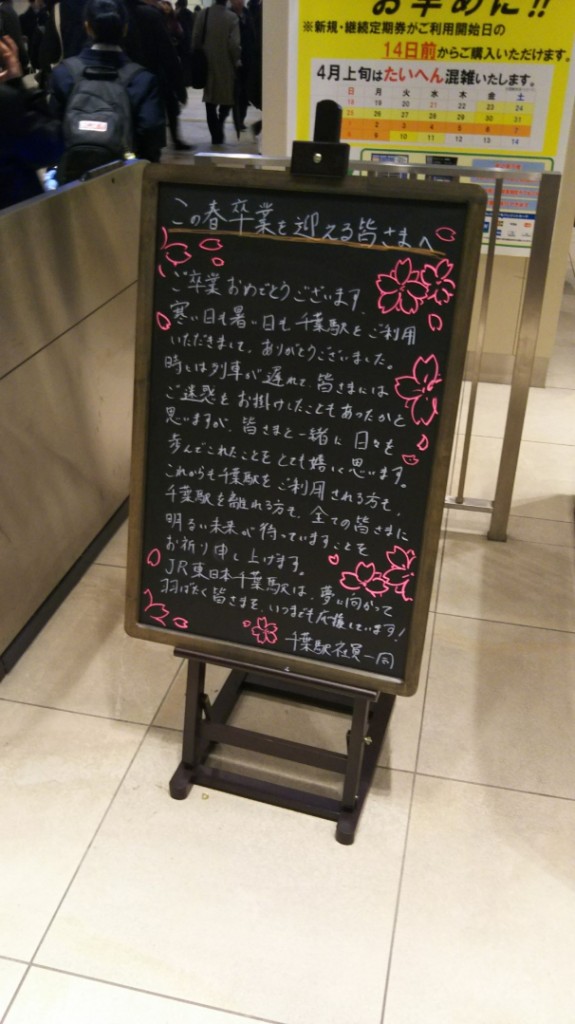 お早めに!!
※新規・継続定期券がご利用開始日の
14日前からご購入いただけます。
4月上旬はたいへん混雑いたします。
日 月 火 水 木 金 土
この春卒業を迎える皆さまへ
ご卒業おめでとうございます。
寒い日も暑い日も千葉駅をご利用
いただきまして、ありがとうございました。
時には列車が遅れて、皆さまには
ご迷惑をお掛けしたこともあったかと
思いますが、皆さまと一緒に日々を
歩んでこれたことをとても嬉しく思います。
これからも千葉駅をご利用される方も、
千葉駅を離れる方も、全ての皆さまに
明るい未来が待っていますことを
お祈り申し上げます。
JR東日本千葉駅は、夢に向かって
羽ばたく皆さまを、いつまでも応援しています!
千葉駅社員一同